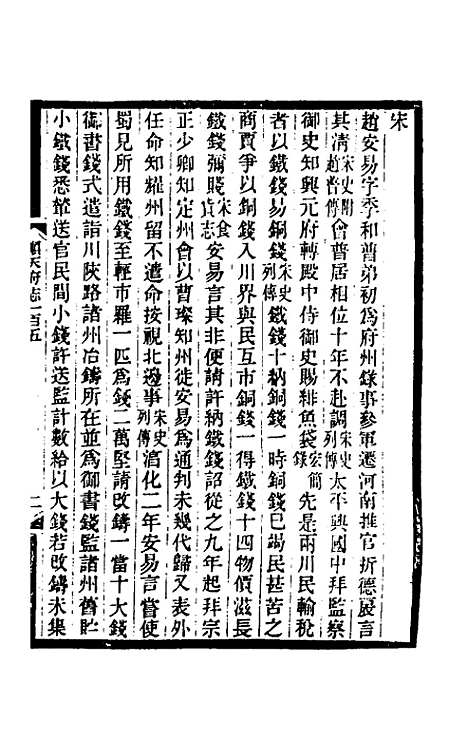 宋
趙安易字季和普弟初爲府州錄事參軍遷河南推官折德扆言
其清宋史開趙普傳會普居相位十年不赴調宋史列傳太平興國中拜監察
御史知興元府轉殿中侍御史賜緋魚袋宏簡錄先是兩川民輸稅
者以鐵錢易銅錢宋史列傳鐵錢十納銅錢一時銅錢已竭民甚苦之
商賈爭以銅錢入川界與民互市銅錢一得鐵錢十四物價滋長
鐵錢彌賤宋食貨志安易言其非便請許納鐵錢詔從之九年起拜宗
正少卿知定州會以曹璨知州徙安易爲通判未幾代歸又表外
任命知耀州留不遣命按視北邊事宋史列傳淳化二年安易言嘗使
蜀見所用鐵錢至輕市羅一匹爲錢二萬堅請改鑄一當十大錢
御書錢式遣詣川陝路諸州冶鑄所在並爲御書錢監諸州舊貯
小鐵錢悉輦送官民間小錢許送監計數給以大錢若改鑄未集
順天府志一百五
二